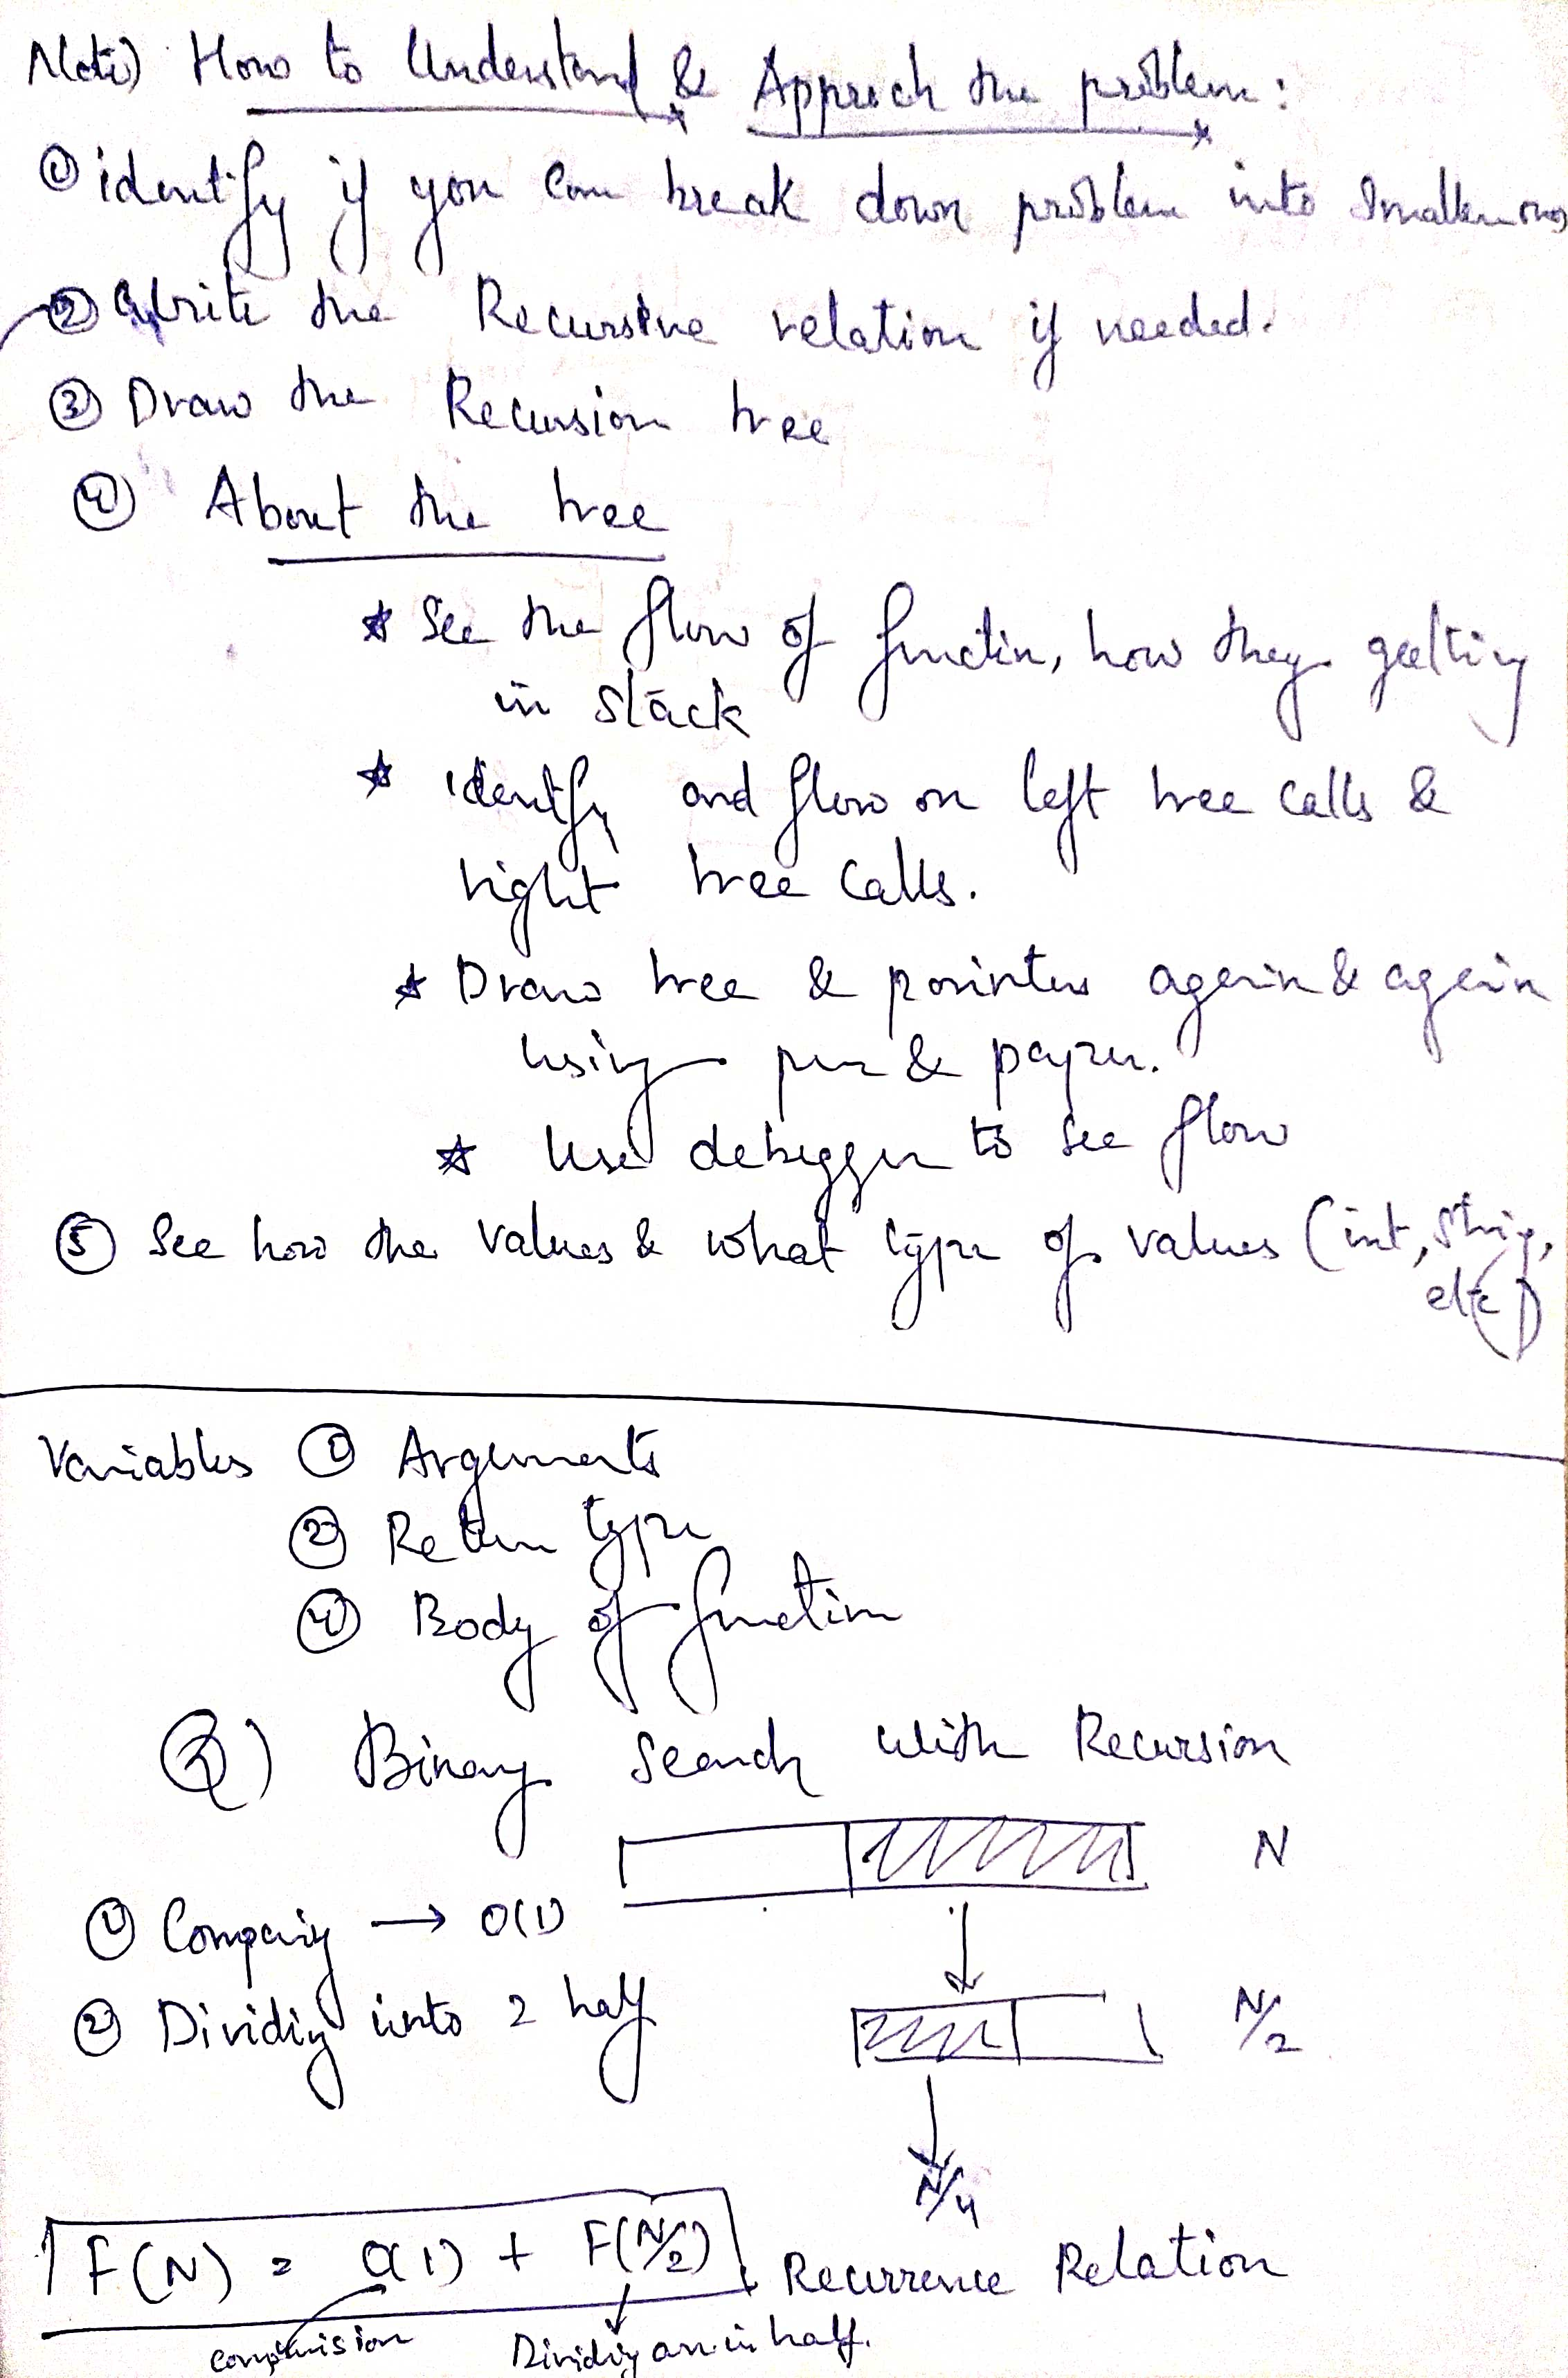 Note) How to Understand & Approch the problem:
① identify if you can break down problem into smaller ones
② Write the Recursive relation if needed.
③ Draw the Recursion tree
④ About the tree
* See the flow of functin, how they getting
in stack
* identify and flow on left tree calls &
right tree calls.
* Draw tree & pointers again & again
using pen & paper.
* Use debugger to see flow
⑤ See how the values & what type of values (int, string,
etc)
Variables ① Arguments
② Return type
④ Body of function
Q) Binary Search with Recursion
N
① Comparing → O(1)
② Dividing into 2 half
N/2
N/4
F(N) = O(1) + F(N/2) Recurrence Relation
Dividing arr in half.